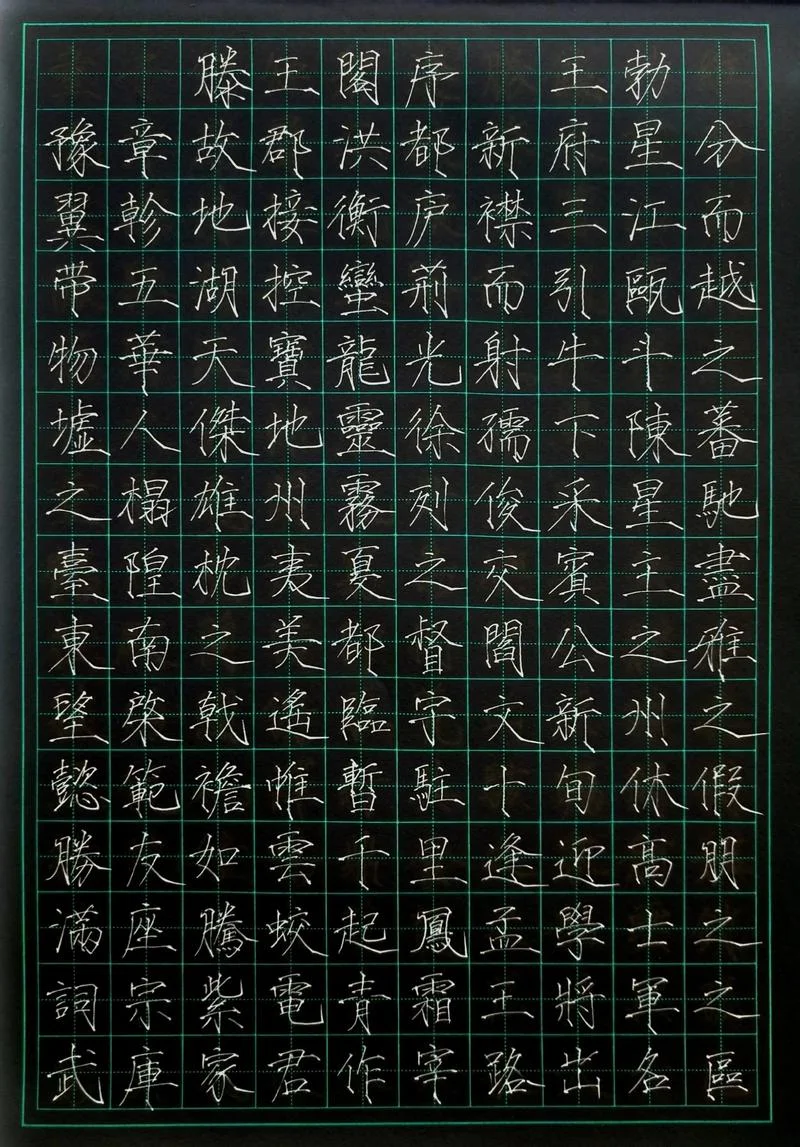 滕王閣序 王勃
豫章故郡洪都新府星分
翼軫地接衡庐襟三江而
带五湖控蠻荊而引甌越
物華天寶龍光射牛斗之
墟人傑地靈徐孺下陳蕃
之榻雄州霧列俊采星馳
臺隍枕夷夏之交賓主盡
東南之美都督閻公之雅
望棨戟遙臨宇文新州之
懿範襜帷暫駐十旬休假
勝友如雲千里逢迎高朋
滿座騰蛟起鳳孟學士之
詞宗紫電青霜王將軍之
武庫家君作宰路出名區